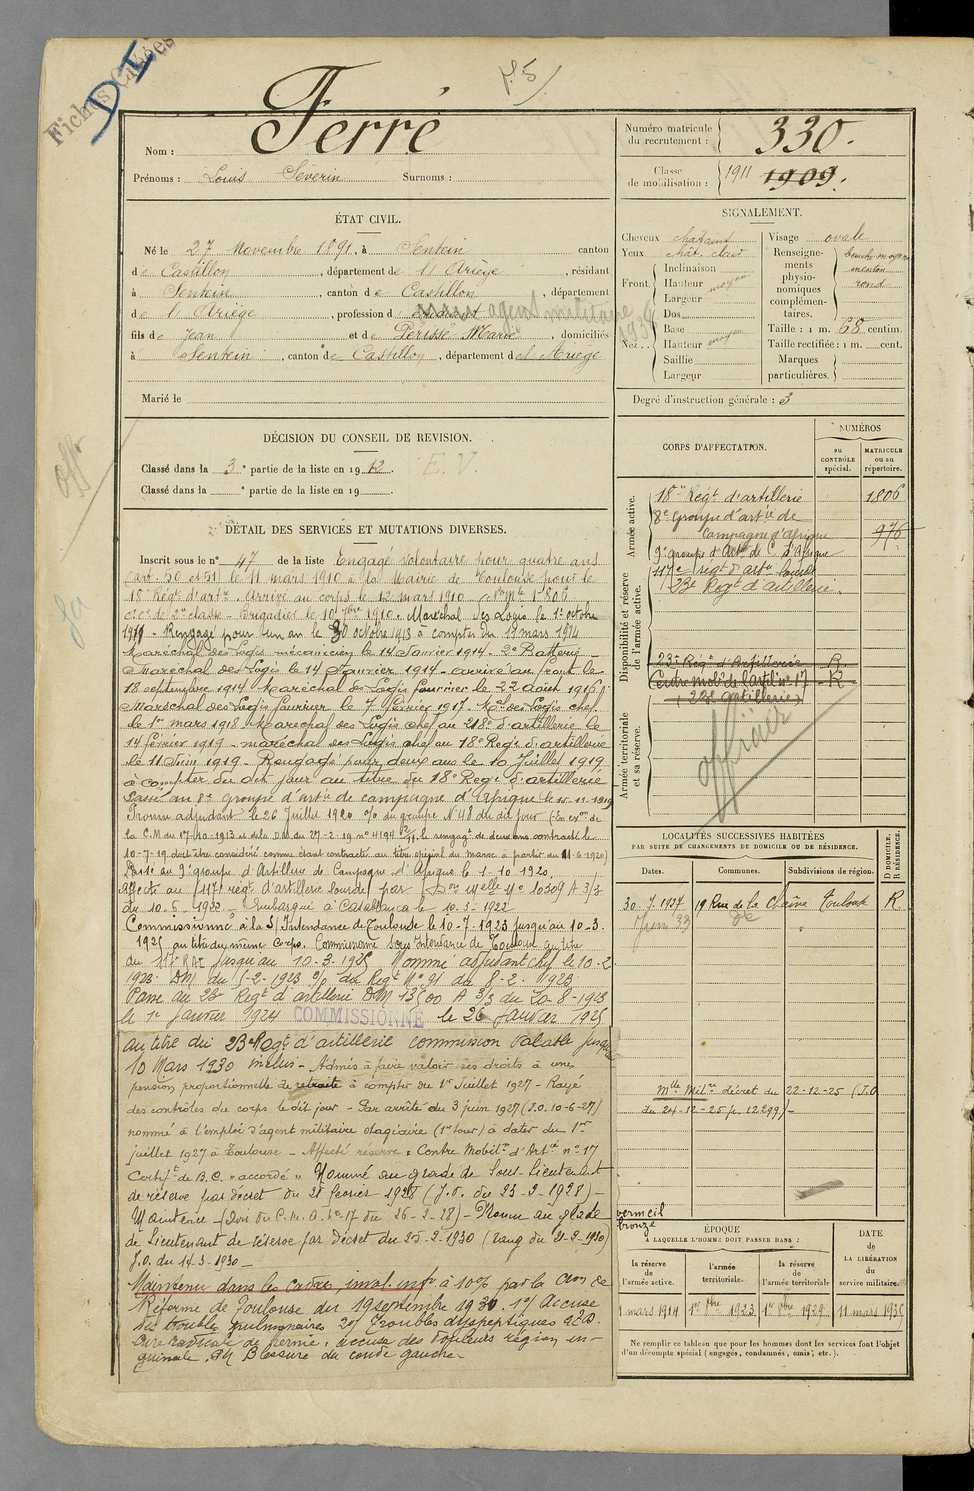 Fiches Classées
D I
p. 5)
Nom : Ferré
Prénoms : Louis Séverin Surnoms :
ÉTAT CIVIL.
Né le 27 Novembre 1891, à Sentein canton
de Castillon, département de l'Ariège, résidant
à Sentein, canton de Castillon, département
de l'Ariège, profession d agent militaire
1934
fils de Jean et de Périssé Marie, domiciliés
à Sentein, canton de Castillon, département de l'Ariège
Marié le
DÉCISION DU CONSEIL DE REVISION.
Classé dans la 3e partie de la liste en 1912. E. V.
Classé dans la e partie de la liste en 19
off
DÉTAIL DES SERVICES ET MUTATIONS DIVERSES.
Inscrit sous le n° 47 de la liste Engagé volontaire pour quatre ans
(art. 50 et 51) le 11 mars 1910 à la Mairie de Toulouse pour le
18e Régt d'artie Arrivé au corps le 12 mars 1910 - No Mle 1806
de 2e classe - Brigadier le 10 1910. Maréchal des Logis le 1er octobre
1911 - Rengagé pour un an le 30 octobre 1913 à compter du 11 mars 1914
Maréchal des Logis mécanicien le 14 Janvier 1914. 2e Batterie -
Maréchal des Logis le 14 Janvier 1914 - arrivé au front le
18 septembre 1914 Maréchal des Logis fourrier le 22 août 1916
Maréchal des Logis fourrier le 7 février 1917. Mal des Logis chef
le 1er mars 1918 Maréchal des Logis chef au 218e d'artillerie le
14 février 1919 - maréchal des Logis chef au 18e Régt d'artillerie
le 11 Juin 1919. Rengagé pour deux ans le 10 Juillet 1919
à compter du dit jour au titre du 18e Régt d'artillerie
Passé au 8e groupe d'artie de campagne d'Afrique le 15-11-1919
Promu adjudant le 26 Juillet 1920 o/ du groupe N° 48 du dit jour (En exon de
la C.M du 17-10-1913 et de la D.M. du 27-2-19 n° 4194 le rengagt de deux ans contracté le
10-7-19 doit être considéré comme étant contracté au titre spécial du maroc à partir du 21-6-1920)
Passé au 9e groupe d'Artillerie de Campagne d'Afrique le 1-10-1920.
Affecté au 117e régt d'artillerie lourde par Don Melle N° 10309 A 3/3
du 10-5-1922 - Embarqué à Casablanca le 10-5-1922
Commissionné à la S/Intendance de Toulouse le 10-7-1923 jusqu'au 10-3-
1925 au titre du même corps. Commissionné Sous Intendance de Toulouse au titre
du 117e RAL jusqu'au 10-3-1925 Nommé adjudant chef le 10-2
1923. DM du 5-2-1923 o/ du Régt N° 91 du 8-2-1923
Passé au 23e Régt d'artillerie DM 13500 A 3/3 du 20-8-1923
le 1er Janvier 1924 COMMISSIONNÉ le 26 Janvier 1925
au titre du 23e Régt d'artillerie commission valable jusqu'au
10 Mars 1930 inclus - Admis à faire valoir ses droits à une
pension proportionnelle de retraite à compter du 1er Juillet 1927 - Rayé
des contrôles du corps le dit jour - Par arrêté du 3 juin 1927 (J.O. 10-6-27)
nommé à l'emploi d'agent militaire stagiaire (1er tour) à dater du 1er
juillet 1927 à Toulouse - Affecté réserve : Centre Mobilon d'Artie n° 17
Certift de B.C. "accordé" Nommé au grade de Sous-Lieutenant
de réserve par décret du 21 février 1928 (J.O. du 23-2-1928) -
Maintenu - (Avis du C.M.A. N° 17 du 26-2-28) - Promu au grade
de Lieutenant de réserve par décret du 25-2-1930 (rang du 21-2-1930)
J.O. du 14-3-1930 -
Maintenu dans les cadres, inval. inf. à 10% par la Con de
Réforme de Toulouse du 19 septembre 1930. 1°/ Accuse
des troubles pulmonaires 2°/ Troubles dyspeptiques 3°/
Cure radicale de hernie, accuse des douleurs région in-
guinale. 4°/ Blessure du coude gauche
Numéro matricule
du recrutement : 330.
Classe
de mobilisation : 1911 1909.
SIGNALEMENT.
Cheveux châtains
Yeux chât. clair
Front. Inclinaison
Hauteur moyen
Largeur
Nez. . Dos
Base
Hauteur moyen
Saillie
Largeur
Visage ovale
Renseignements physionomiques complémentaires. bouche moyenne
menton
rond
Taille : 1 m. 68 centim.
Taille rectifiée : 1 m. cent.
Marques
particulières.
Degré d'instruction générale : 3
CORPS D'AFFECTATION.
NUMÉROS
au CONTRÔLE spécial.
MATRICULE ou au répertoire.
Armée active.
18e Régt d'artillerie 1806
8e Groupe d'artie de
Campagne d'Afrique 976
9e groupe d'Artie de C. d'Afrique
117e régt d'artie lourde
23e Régt d'artillerie.
Disponibilité et réserve
de l'armée active.
23e Régt d'Artillerie R.
Centre Mobe de l'artie n° 17 R
(23e artillerie)
officier
Armée territoriale
et sa réserve.
LOCALITÉS SUCCESSIVES HABITÉES
PAR SUITE DE CHANGEMENTS DE DOMICILE OU DE RÉSIDENCE.
Dates. Communes. Subdivisions de région. D DOMICILE. R RÉSIDENCE.
30.7.1927 19 Rue de la Chaîne Toulouse R.
Juin 33 de
Mlle Milre décret du 22-12-25 (J.O.
du 24-12-25 p. 12299) -
vermeil
bronze
ÉPOQUE
A LAQUELLE L'HOMME DOIT PASSER DANS :
la réserve de l'armée active.
l'armée territoriale.
la réserve de l'armée territoriale
DATE de la LIBÉRATION du service militaire.
1 mars 1914 1er 8bre 1923 1er 8bre 1929 11 mars 1935
Ne remplir ce tableau que pour les hommes dont les services font l'objet
d'un décompte spécial (engagés, condamnés, omis, etc.).